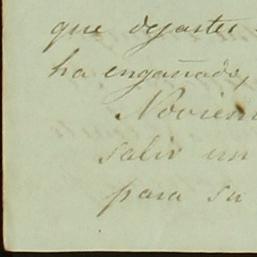 que dejastes
ha engañado,
Noviem
salir un
para su